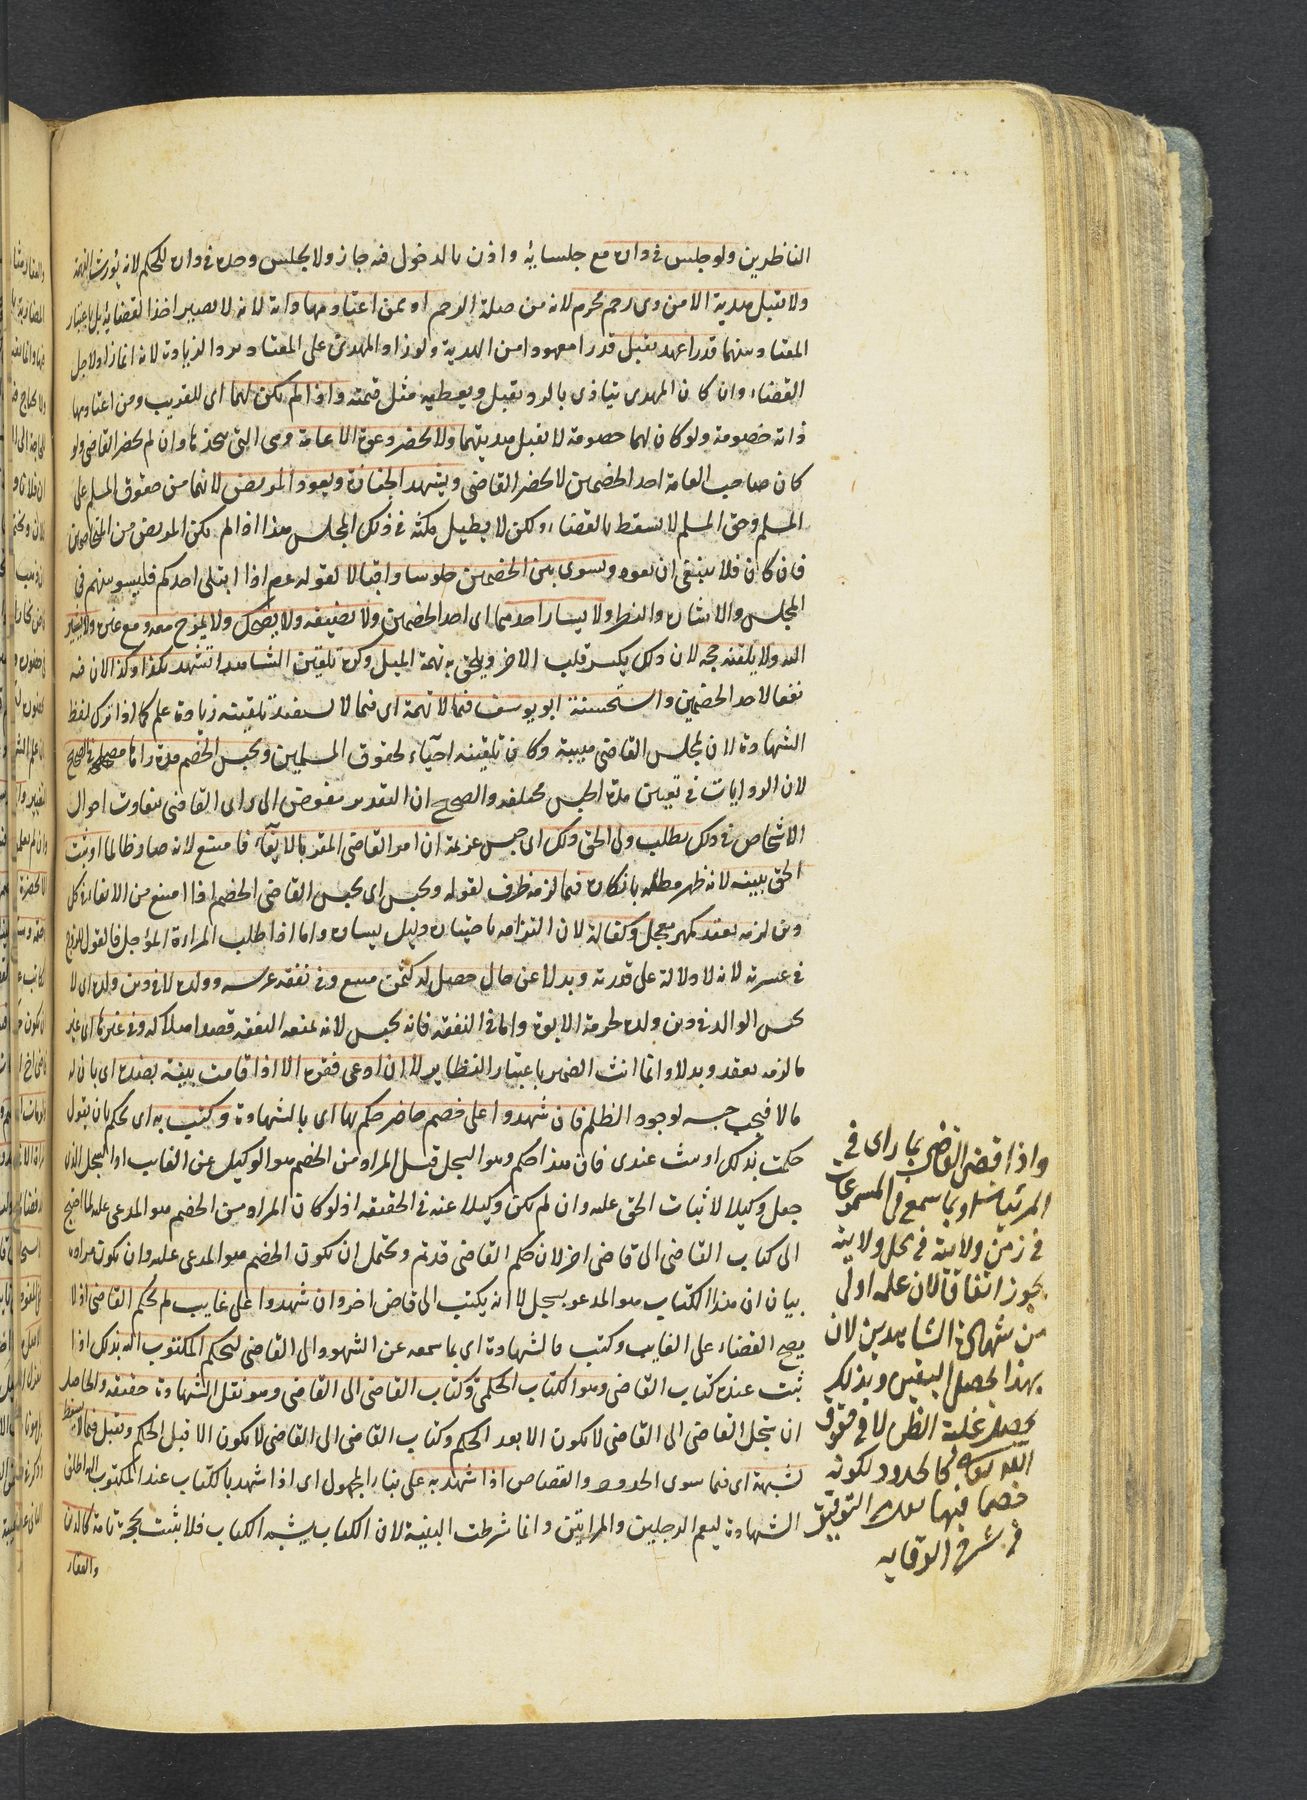 الناظرين ولو جلس فى داره مع جلسايه واذن بالدخول فيه جاز ولا يجلس وحده فى داره للحكم لانه يورث التهمة
ولا تقبل هدية الا من ذى رحم محرم لانه من صلة الرحم او ممن اعتاد مهاداته لانه لا يصير اخذا لقضائه بل باعتبار
المعتاد بينهما قدرا عهد يقبل قدرا معهودا من الهدية ولو زاد المهدى على المعتاد يرد الزيادة لانه انما زاد لاجل
القضاء وان كان المهدى يتاذى بالرد يقبل ويعطيه مثل قيمته واذا لم يكن لهما اى للقريب ومن اعتاد مها
داته خصومة ولو كان لهما خصومة لا يقبل هديتهما ولا يحضر دعوة الا عامة وهى التى يتخذها وان لم يحضر القاضى ولو
كان صاحب العامة احد الخصمين لا يحضر القاضى ويشهد الجنازة ويعود المريض لانهما من حقوق المسلم على
المسلم وحق المسلم لا يسقط بالقضاء ولكن لا يطيل مكثه فى ذلك المجلس هذا اذا لم يكن المريض من المتخاصمين
فان كان فلا ينبغى ان يعوده ويسوى بين الخصمين جلوسا واقبالا لقوله عم اذا ابتلى احدكم فليسو بينهم فى
المجلس والاشارة والنظر ولا يسار احدهما اى احد الخصمين ولا يضيفه ولا يضحك ولا يمزح معه ومع غيره ولا يشير
اليه ولا يلقنه حجة لان ذلك يكسر قلب الاخر ويلحق به تهمة الميل وكره تلقين الشاهد اتشهد بكذا وكذا لان فيه
نفعا لاحد الخصمين واستحسنه ابو يوسف فيما لا تهمة اى فيما لا يستفيد بتلقينه زيادة علم كما اذا ترك لفظ
الشهادة لان لمجلس القاضى هيبة وكان تلقينه احياء لحقوق المسلمين ويحبس الخصم مدة راها مصلحة فى الصحيح
لان الروايات فى تعيين مدة الحبس مختلفة والصحيح ان التقدير مفوض الى راى القاضى لتفاوت احوال
الاشخاص فى ذلك بطلب ولى الحق ذلك اى حبس غريمه ان امر القاضى المقر بالايفاء فامتنع لانه صار ظالما او ثبت
الحق ببينة لانه ظهر مطله بانكاره فيما لزمه ظرف لقوله ويحبس اى يحبس القاضى الخصم اذا امتنع من الايفاء فى كل
دين لزمه بعقد كمهر معجل وكفالة لان التزامه باختياره دليل يساره واما اذا طلب المراة المؤجل فالقول للزوج
فى عسرته لانه لا دلالة على قدرته وبدلا عن مال حصل له كثمن مبيع وفى نفقة عرسه وولده لا فى دين ولده اى لا
يحبس الوالد فى دين ولده لحرمة الابوة واما فى النفقة فانه يحبس لانه بمنعه النفقة قصد اهلاكه وفى غيرها اى غير
ما لزمه بعقد وبدلا وانما انث الضمير باعتبار النظاير لا ان ادعى فقره الا اذا قامت بينة بضده اى بان له
مالا فيجب حبسه لوجود الظلم فان شهدوا على خصم حاضر حكم بها اى بالشهادة وكتب به اى بحكم بان يقول
حكمت بذلك او ثبت عندى فان هذا حكم وهو السجل قيل المراد من الخصم هو الوكيل عن الغايب او المسجل الذى
جعل وكيلا لاثبات الحق عليه وان لم يكن وكيلا عنه فى الحقيقة اذ لو كان المراد من الخصم هو المدعى عليه لما احتيج
الى كتاب القاضى الى قاضى اخر لان حكم القاضى قد تم ويحتمل ان يكون الخصم هو المدعى عليه وان يكون مراده
بيان ان هذا الكتاب هو المدعو بسجل لا انه يكتب الى قاض اخر وان شهدوا على غايب لم يحكم القاضى اذ لا
يصح القضاء على الغايب وكتب بالشهادة اى بما سمعه عن الشهود الى القاضى ليحكم المكتوب اليه بذلك اذا
ثبت عنده كتاب القاضى وهو الكتاب الحكمى وكتاب القاضى الى القاضى وهو نقل الشهادة حقيقة والحاصل
ان سجل القاضى الى القاضى لا يكون الا بعد الحكم وكتاب القاضى الى القاضى لا يكون الا قبل الحكم ويقبل فيما لا يسقط
بشبهة اى فيما سوى الحدود والقصاص اذا شهد به على بناء المجهول اى اذا شهد بالكتاب عند المكتوب اليه اطلق
الشهادة ليعم الرجلين والمراتين وانما شرطت البينة لان الكتاب يشبه الكتاب فلا يثبت بحجة تامة كالدين
والعقار
واذا قضى القاضى بما راى فى
المرئيات او بما سمع فى المسموعات
فى زمن ولايته فى محل ولايته
يجوز اتفاقا لان علمه اولى
من شهادة الشاهدين لان
بهذا يحصل اليقين وبذلك
يحصل غلبة الظن لا فى حقوق
الله تعالى كالحدود لكونه
خصما فيها
فى شرح الوقايه